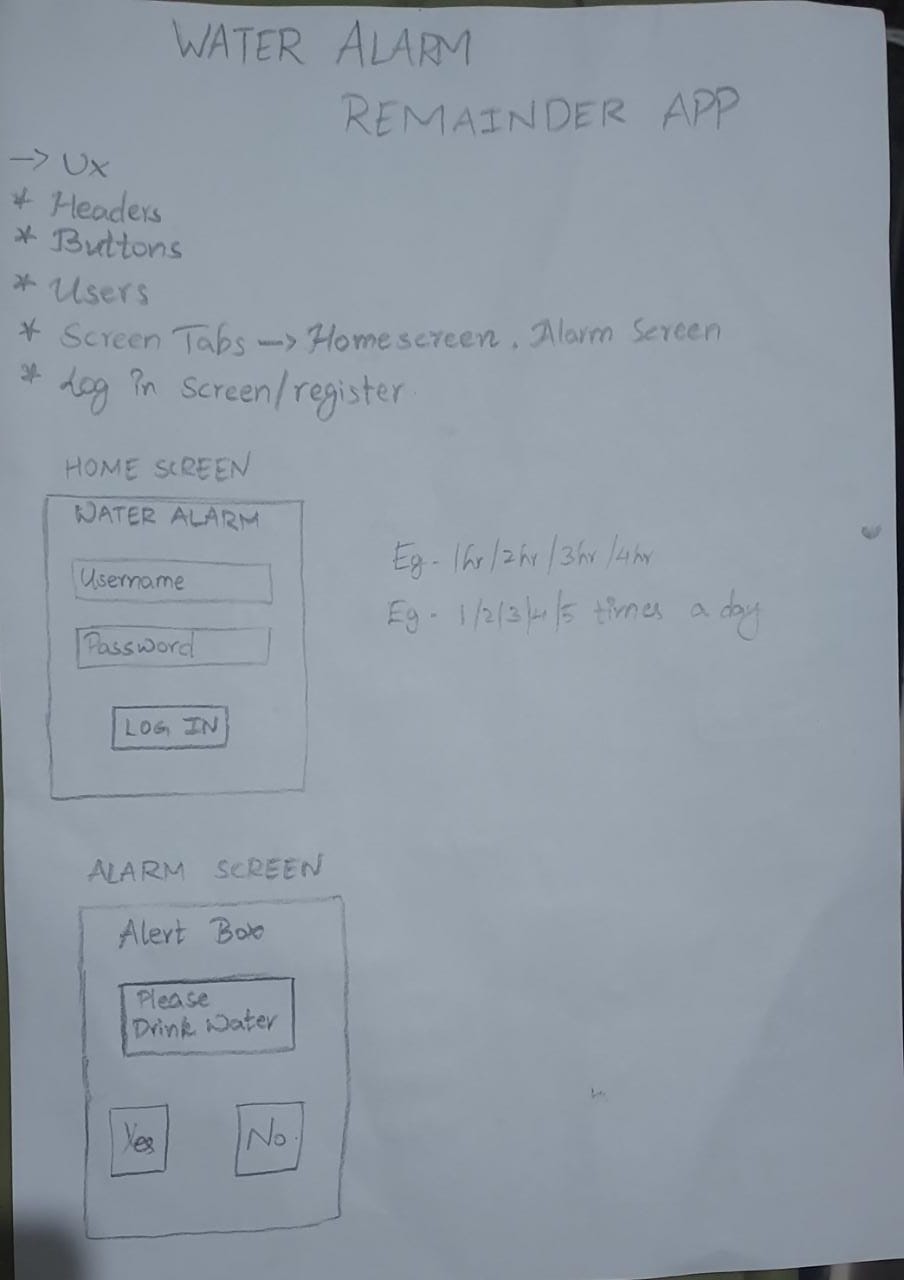 WATER ALARM
REMAINDER APP
-> Ux
* Headers
* Buttons
* Users
* Screen Tabs -> Homescreen, Alarm Screen
* Log in screen/register.
HOME SCREEN
WATER ALARM
Username
Password
LOG IN
Eg - 1hr/2hr/3hr/4hr
Eg - 1/2/3/4/5 times a day
ALARM SCREEN
Alert Box
Please
Drink Water
Yes
No.